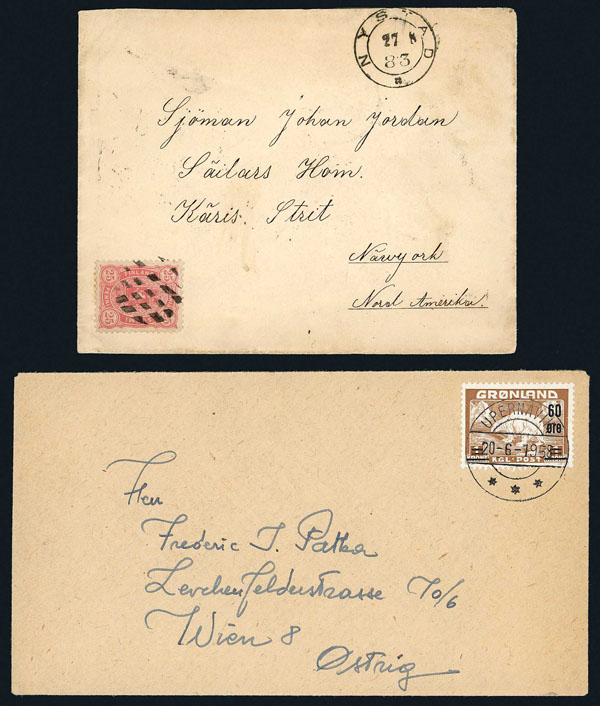 NYSTAD
27 K
83
Sjöman Johan Jordan
Säilars Hom.
Käris Strit
Näwyork
Nord Amerika.
FINLAND
25 25
25 25
GRØNLAND
60
ØRE
UPERNAVIK
20-6-1958
KGL·POST
Herr
Frederic J. Patka
Lerchenfelderstrasse 70/6
Wien 8
Østrig